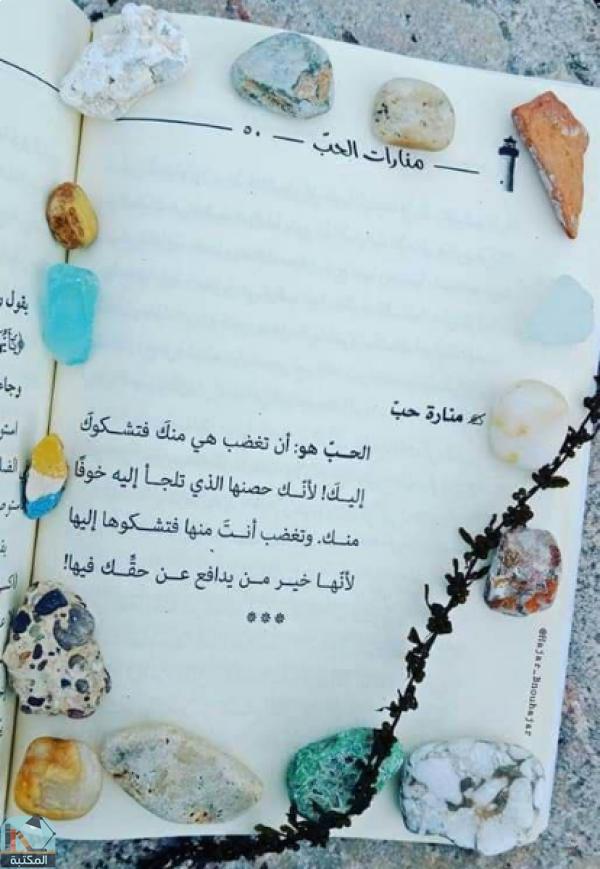 منارات الحبّ
٥٠
منارة حبّ
الحــبّ هو: أن تغضب هي منكَ فتشــكوكَ
إليـكَ! لأنّـك حصنها الذي تلجـأ إليه خوفًا
منــك. وتغضب أنــتَ منها فتشــكوها إليها
لأنّهـا خيـر مـن يدافع عـن حقِّـك فيها!
***
يقول
@Hajar_Bnouhajar
المكتبة